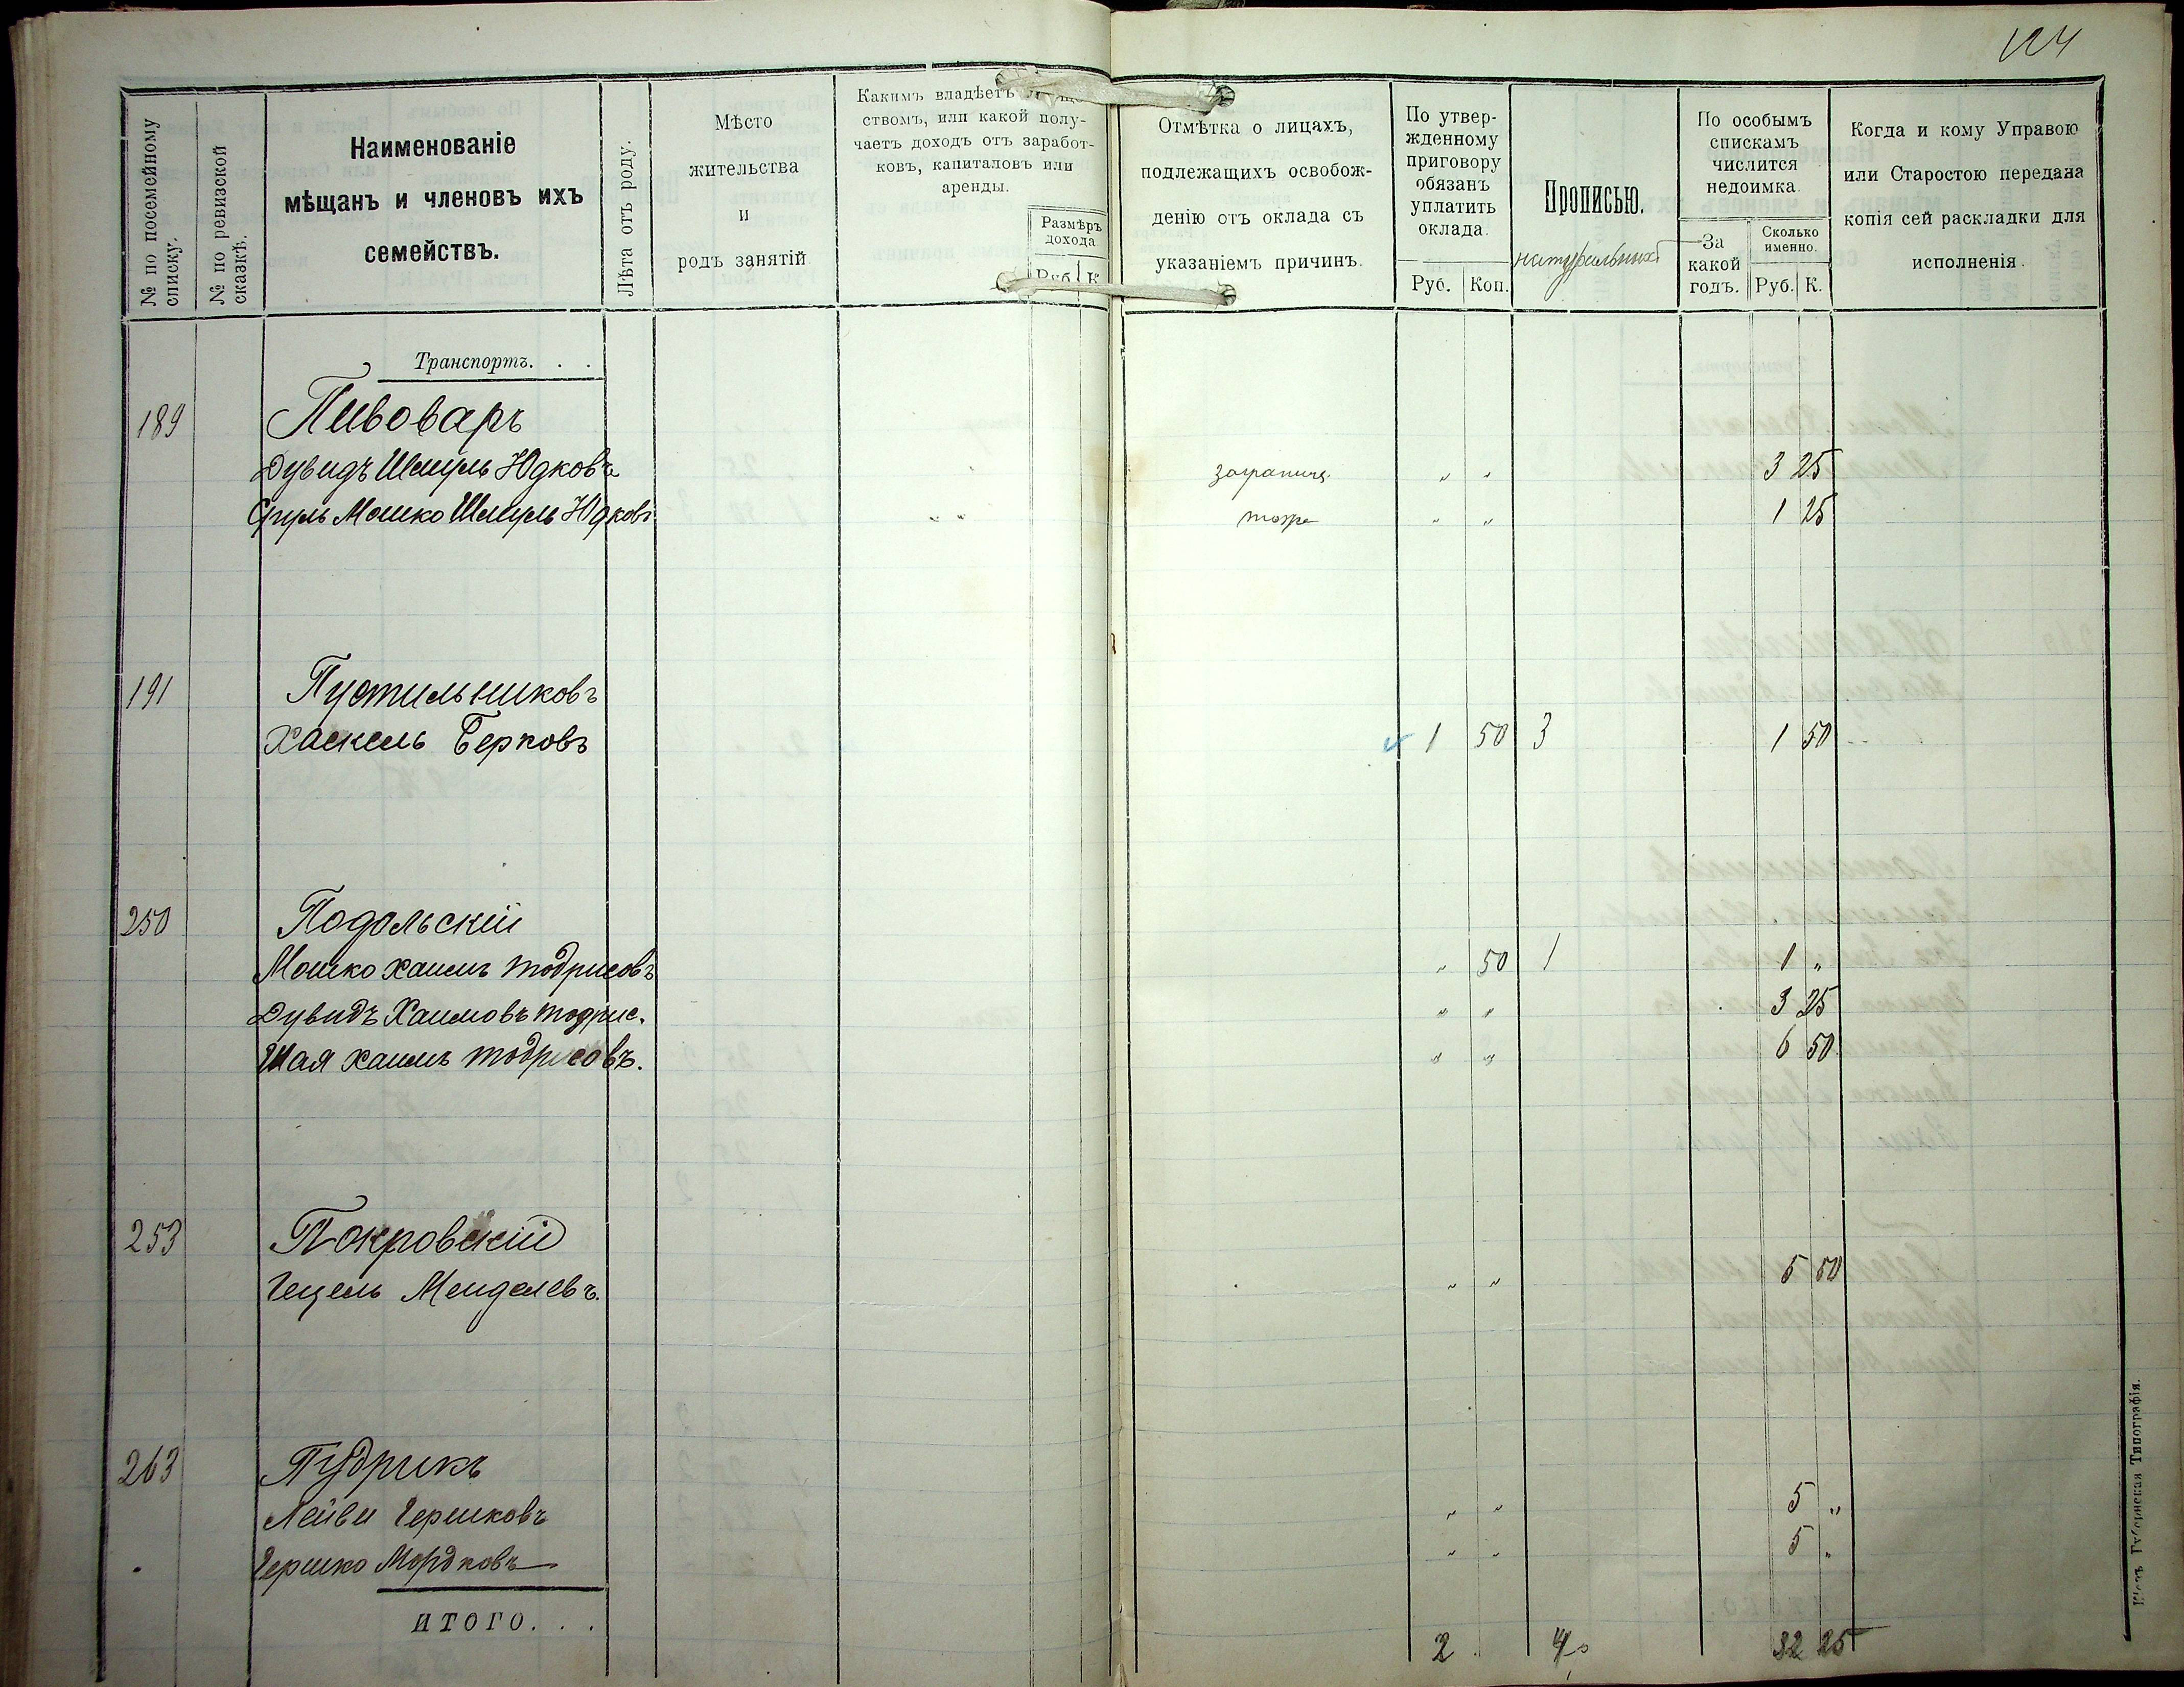 124
№ по посемейному списку.
№ по ревизской сказкѣ.
Наименованіе
мѣщанъ и членовъ ихъ
семействъ.
Лѣта отъ роду.
Мѣсто
жительства
и
родъ занятій
Какимъ владѣетъ
ствомъ, или какой полу-
чаетъ доходъ отъ заработ-
ковъ, капиталовъ или
аренды.
Размѣръ
дохода
Руб. К
Отмѣтка о лицахъ,
подлежащихъ освобож-
денію отъ оклада съ
указаніемъ причинъ.
По утвер-
жденному
приговору
обязанъ
уплатить
оклада.
Руб. Коп.
Прописью.
натуральныхъ
По особымъ
спискамъ
числится
недоимка.
За
какой
годъ.
Сколько
именно.
Руб. К.
Когда и кому Управою
или Старостою передана
копія сей раскладки для
исполненія.
Транспортъ. . .
189 Пивоваръ
Дувидъ Шмуль Юдковъ заграница " " 3 25
Сруль Мошко Шмуль Юдковъ " " тоже " " 1 25
191 Пустильниковъ
Хаскель Берковъ 1 50 3 1 50
250 Подольскій
Мошко Хаимъ Тодрисовъ " 50 1 1 "
Дувидъ Хаимовъ Тодрис. " " 3 25
Шая Хаимъ Тодрисовъ. " " 6 50
253 Покровскій
Гецель Менделевъ. " " 5 50
263 Пудрикъ
Лейви Гершковъ " " 5 "
Гершко Мордковъ " " 5 "
ИТОГО. . . 2 4 32 25
Кіевъ Губернская Типографія.